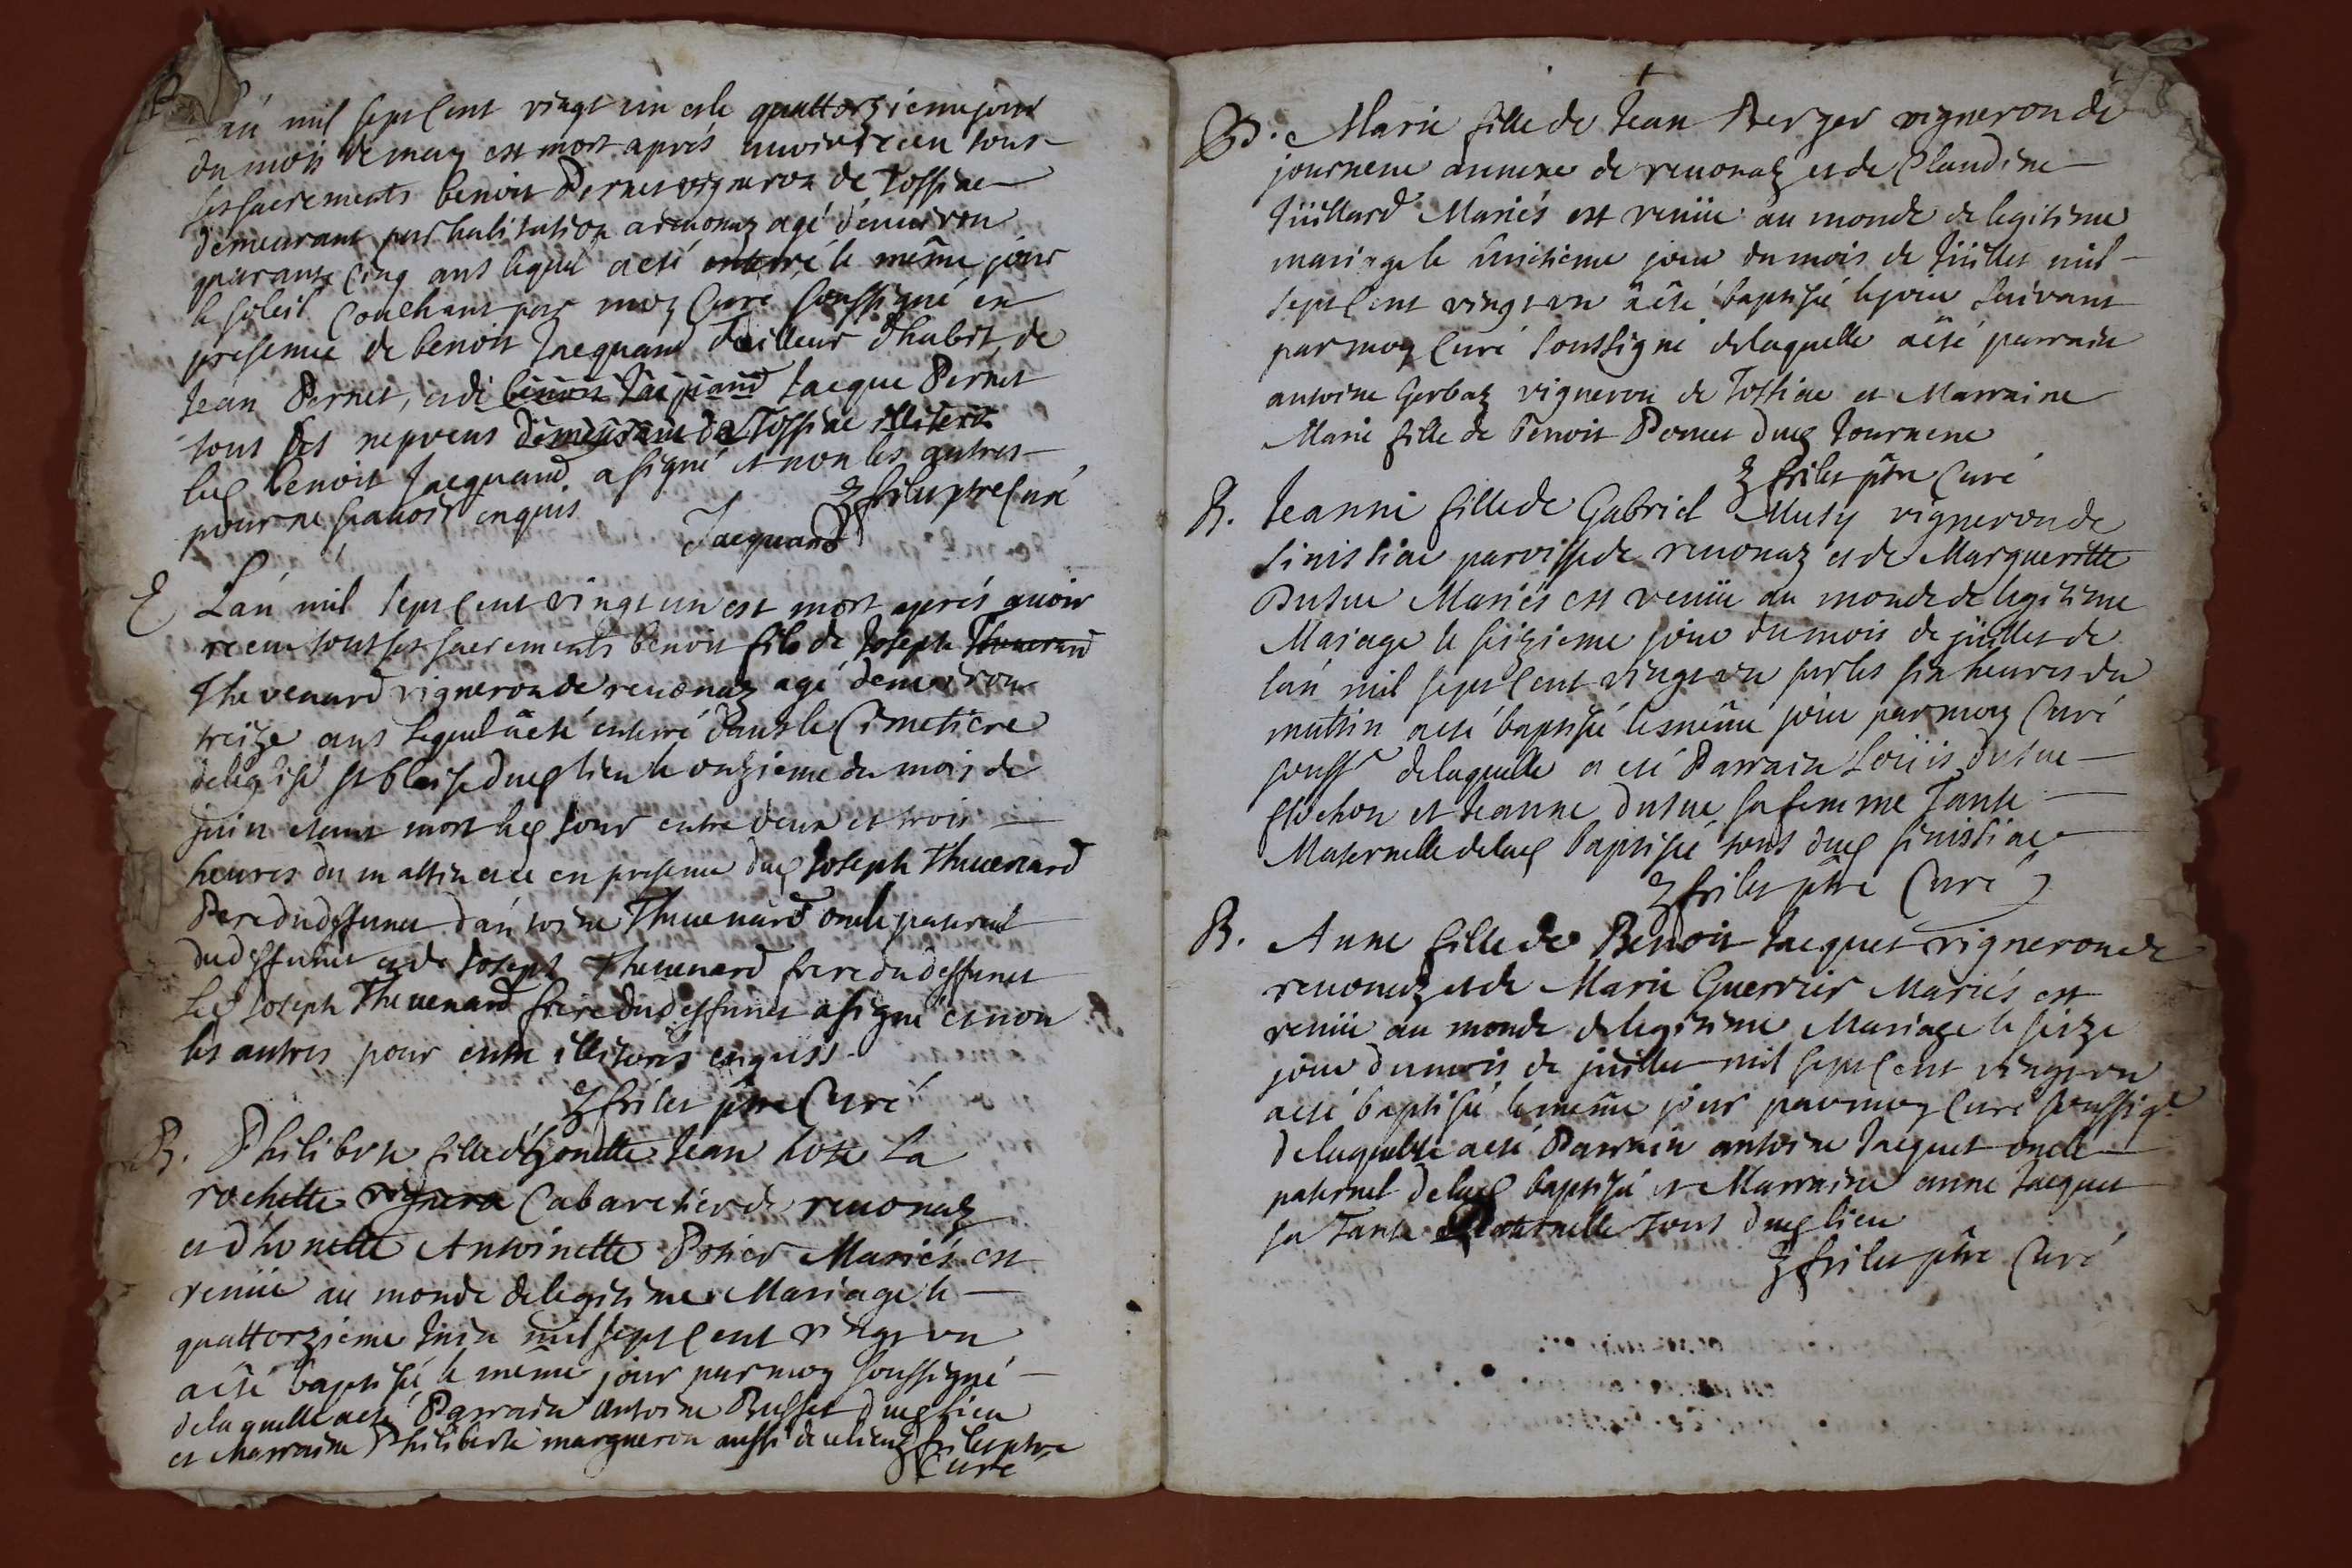 Lán mil sept Cent vingt un et le quattorzieme jour
du mois de may est mort aprés avoir receu tous
ses sacrements benoit Pernet vigneron de Tossiac
demeurant par habitation a reuonaz agé d'enuiron
quarante Cinq ans lequel a eté enterré le même jour
le soleil Couchant par moy Curé soussigné en
presence de benoit Jacquand Tailleur d'habit, de
Jean Pernet, et de benoit Jacquand Jacque Pernet
tous ses nepveus demeurant de Tossiac illiterés
led benoit Jacquand a signé et non les autres
pour ne scauoir enquis
friles ptre Curé
Jacquand
E Lán mil sept Cent vingt un est mort aprés auoir
receu tout ses sacrements benoit fils de Joseph Theuenard
Thevenard vigneron de reuonaz agé d'enuiron
treize ans lequel a eté enterré dans le Cimetiere
de léglise st blaise dud lieu le onzieme du mois de
Juin etant mort led Jour entre deux et trois
heures du mattin et ce en presence dud Joseph Theuenard
Pere dud deffunct d'ántoine Theuenard oncle paternel
dud deffunct et de Joseph Theuenard frere du deffunct
Led Joseph Theuenard frere dud deffunct a signé et non
les autres pour entre illiterés enquiss
friles ptre Curé
B. Philiberte fille d'honette Jean Lote La
rochette vignero Cabaretier de reuonaz
et d'honette Antoinette Potier Mariés est
venüe au monde de legitime Mariage le
quattorzieme Juin mil sept Cent vingt un
a eté baptisée le même jour par moy soussigné
de laquelle a eté Parrain Antoine Busset dud lieu
et Marraine Philiberte margueron aussi de ce lieu friles ptre
Curé
B. Marie fille de Jean Berger vigneron de
journene annexe de reuonaz et de Claudine
Juillard Mariés est venüe au monde de legitime
mariage le huitieme jour du mois de Juillet mil
sept Cent vingt un a eté baptisé le jour suivant
par moy Curé soussigné de laquelle a eté parrain
antoine Gerbaz vigneron de Tossiac et Marraine
Marie fille de benoit Poncet dud Journene
friles ptre Curé
B. Jeanne fille de Gabriel Musy vigneron de
sinissiac parroisse de reuonaz et de Margueritte
Dutue Mariés est venüe au monde de legitime
Mariage le seizieme jour du mois de juillet de
lán mil sept Cent vingt un sur les six heures du
mattin a eté baptisé le même jour par moy Curé
soussé de laquelle a eté Parrain Loüis dutue
Clochon et Jeanne dutue sa femme Tante
Maternelle de lad baptisée tous dud sinissiac
friles ptre Curé
B. Anne fille de Benoit Jacquet vigneron de
reuonaz et de Marie Guerrier Mariés est
venüe au monde de legitime Mariage le seize
jour du mois de juillet mil sept Cent vingt un
a eté baptisée le même jour par moy Curé soussigé
de laquelle a eté Parrain antoine Jacquet oncle
paternel de lad baptisé et Marraine anne Jacquet
sa Tante Paternelle tous dud lieu
friles ptre Curé